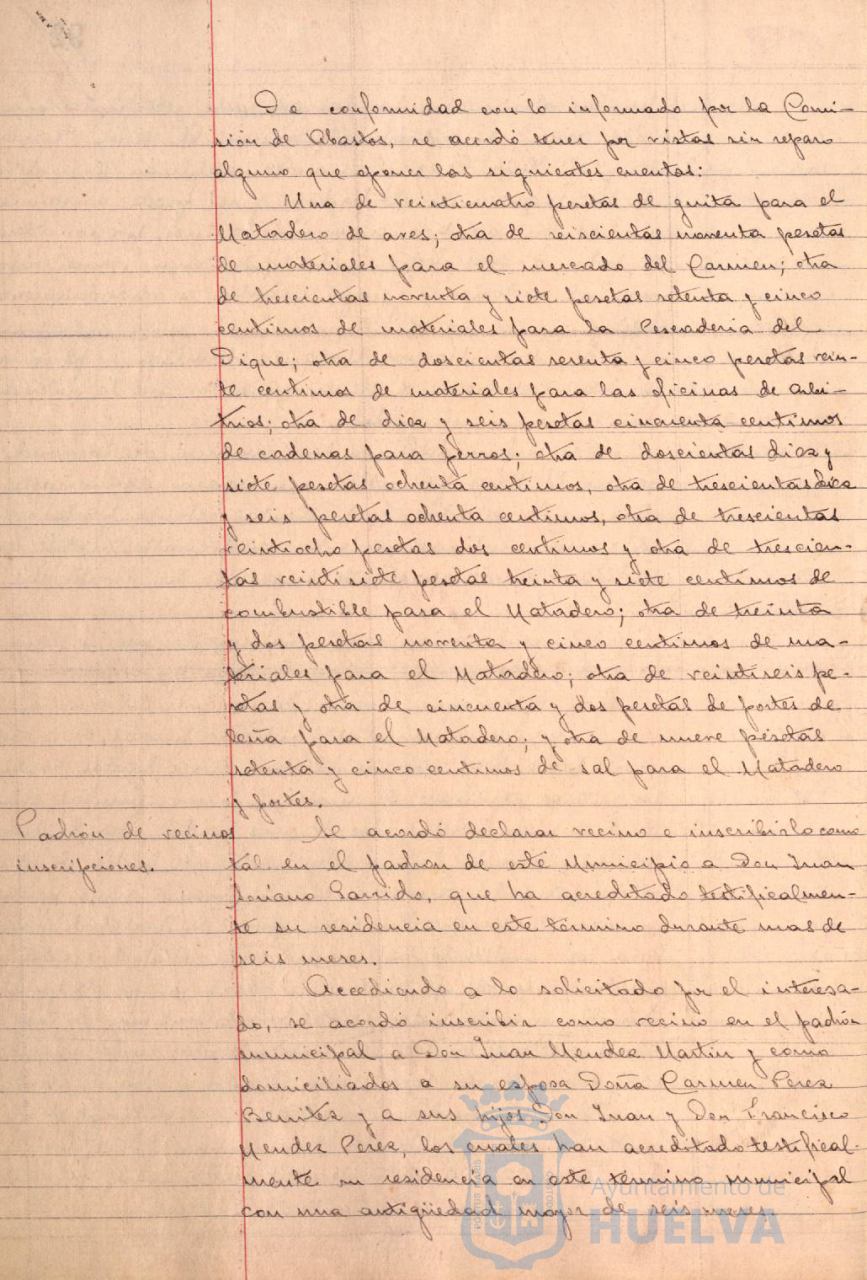 De conformidad con lo informado por la Comi-
sión de Abastos, se acordó tener por vistas sin reparo
alguno que oponer las siguientes cuentas:
Una de veinticuatro pesetas de guita para el
Matadero de aves; otra de seiscientas noventa pesetas
de materiales para el mercado del Carmen; otra
de trescientas noventa y siete pesetas setenta y cinco
centimos de materiales para la Pescaderia del
Dique; otra de doscientas sesenta y cinco pesetas vein-
te centimos de materiales para las oficinas de arbi-
trios; otra de diez y seis pesetas cincuenta centimos
de cadenas para perros; otra de doscientas diez y
siete pesetas ochenta centimos, otra de trescientas diez
y seis pesetas ochenta centimos, otra de trescientas
veintiocho pesetas dos centimos y otra de trescien-
tas veintisiete pesetas treinta y siete centimos de
combustible para el Matadero; otra de treinta
y dos pesetas noventa y cinco centimos de ma-
teriales para el Matadero; otra de veintiseis pe-
setas y otra de cincuenta y dos pesetas de portes de
leña para el Matadero; y otra de nueve pesetas
setenta y cinco centimos de sal para el Matadero
y portes.
Padrón de vecinos
inscripciones.
Se acordó declarar vecino e inscribirlo como
tal en el padron de este Municipio a Don Juan
Soriano Garrido, que ha acreditado testificalmen-
te su residencia en este término durante mas de
seis meses.
Accediendo a lo solicitado por el interesa-
do, se acordó inscribir como vecino en el padrón
municipal a Don Juan Mendez Martin y como
domiciliados a su esposa Doña Carmen Perez
Benitez y a sus hijos Don Juan y Don Francisco
Mendez Perez, los cuales han acreditado testifical-
mente su residencia en este término municipal
con una antigüedad mayor de seis meses.
Ayuntamiento de
HUELVA